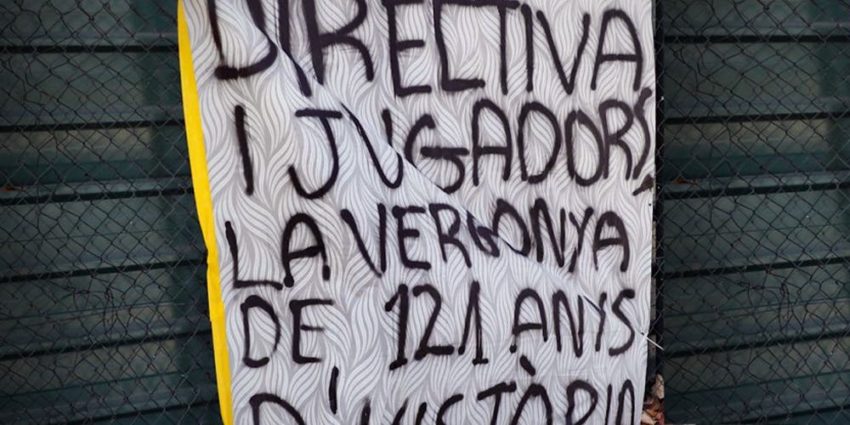 DIRECTIVA
I JUGADORS,
LA VERGONYA
DE 121 ANYS
D'HISTÒRIA